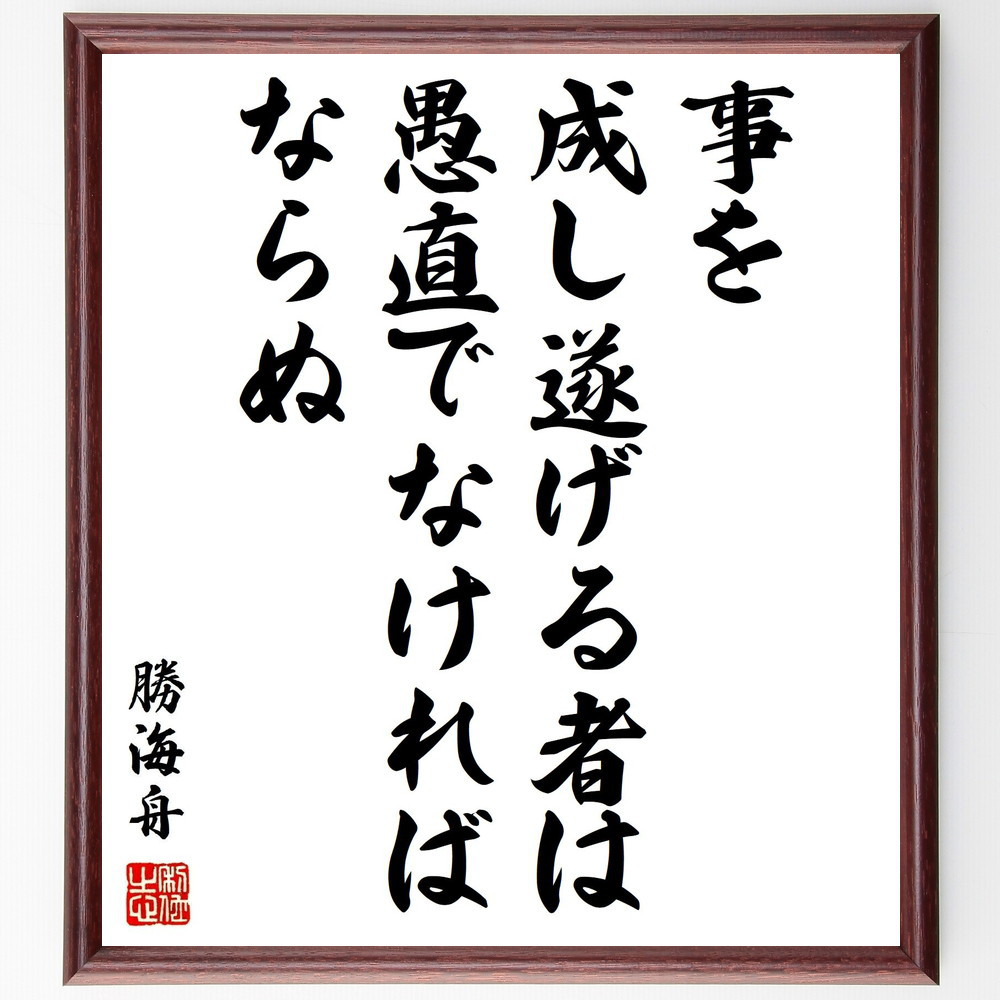 事を
成し遂げる者は
愚直でなければ
ならぬ
勝海舟